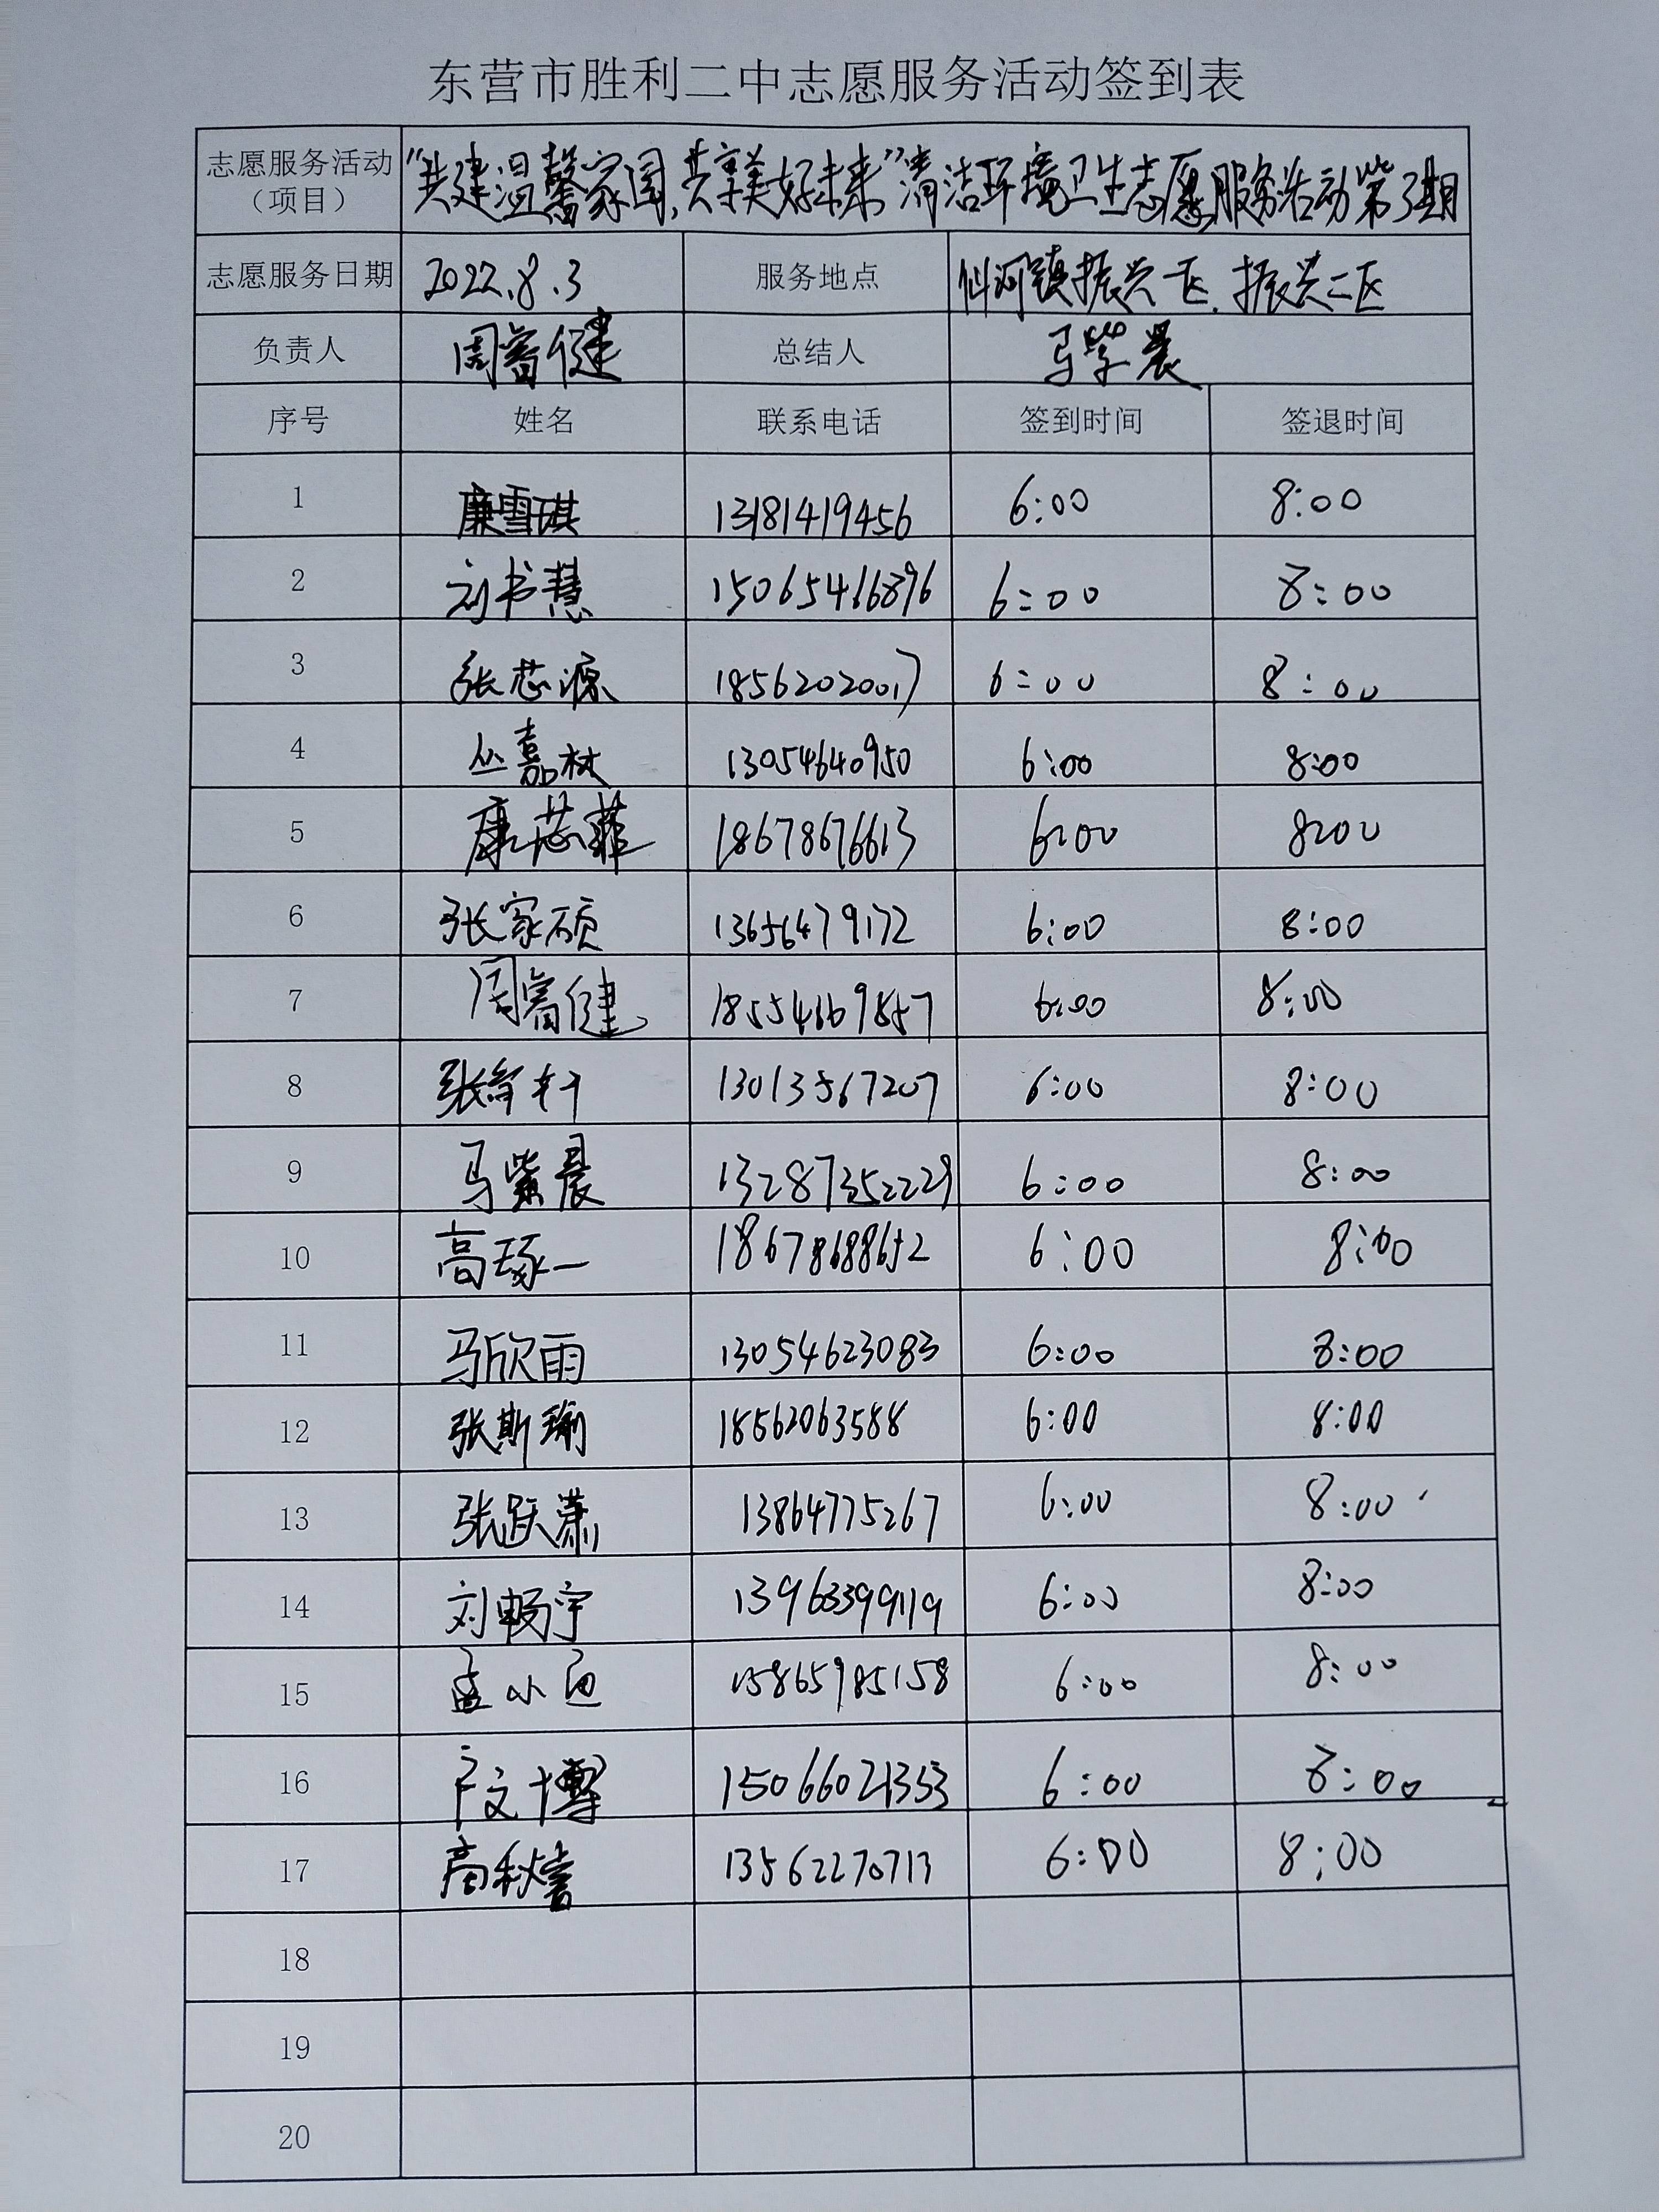 东营市胜利二中志愿服务活动签到表
志愿服务活动（项目） “共建温馨家园,共享美好未来”清洁环境卫生志愿服务活动第3期
志愿服务日期 2022.8.3 服务地点 仙河镇振兴一区、振兴二区
负责人 周睿健 总结人 马紫晨
序号 姓名 联系电话 签到时间 签退时间
1 廉雪琪 13181419456 6:00 8:00
2 刘书慧 15065466896 6:00 8:00
3 张芯源 18562020017 6:00 8:00
4 丛嘉林 13054640950 6:00 8:00
5 康芯菲 18678676613 6:00 8:00
6 张家硕 13656479172 6:00 8:00
7 周睿健 18554669857 6:00 8:00
8 13013567207 6:00 8:00
9 马紫晨 13287352229 6:00 8:00
10 高琢一 18678688652 6:00 8:00
11 马欣雨 13054623083 6:00 8:00
12 张斯瑜 18562063588 6:00 8:00
13 张跃潇 13864775267 6:00 8:00
14 刘畅宇 13963399119 6:00 8:00
15 15865985158 6:00 8:00
16 卢文博 15066021353 6:00 8:00
17 高秋喜 13562270713 6:00 8:00
18
19
20